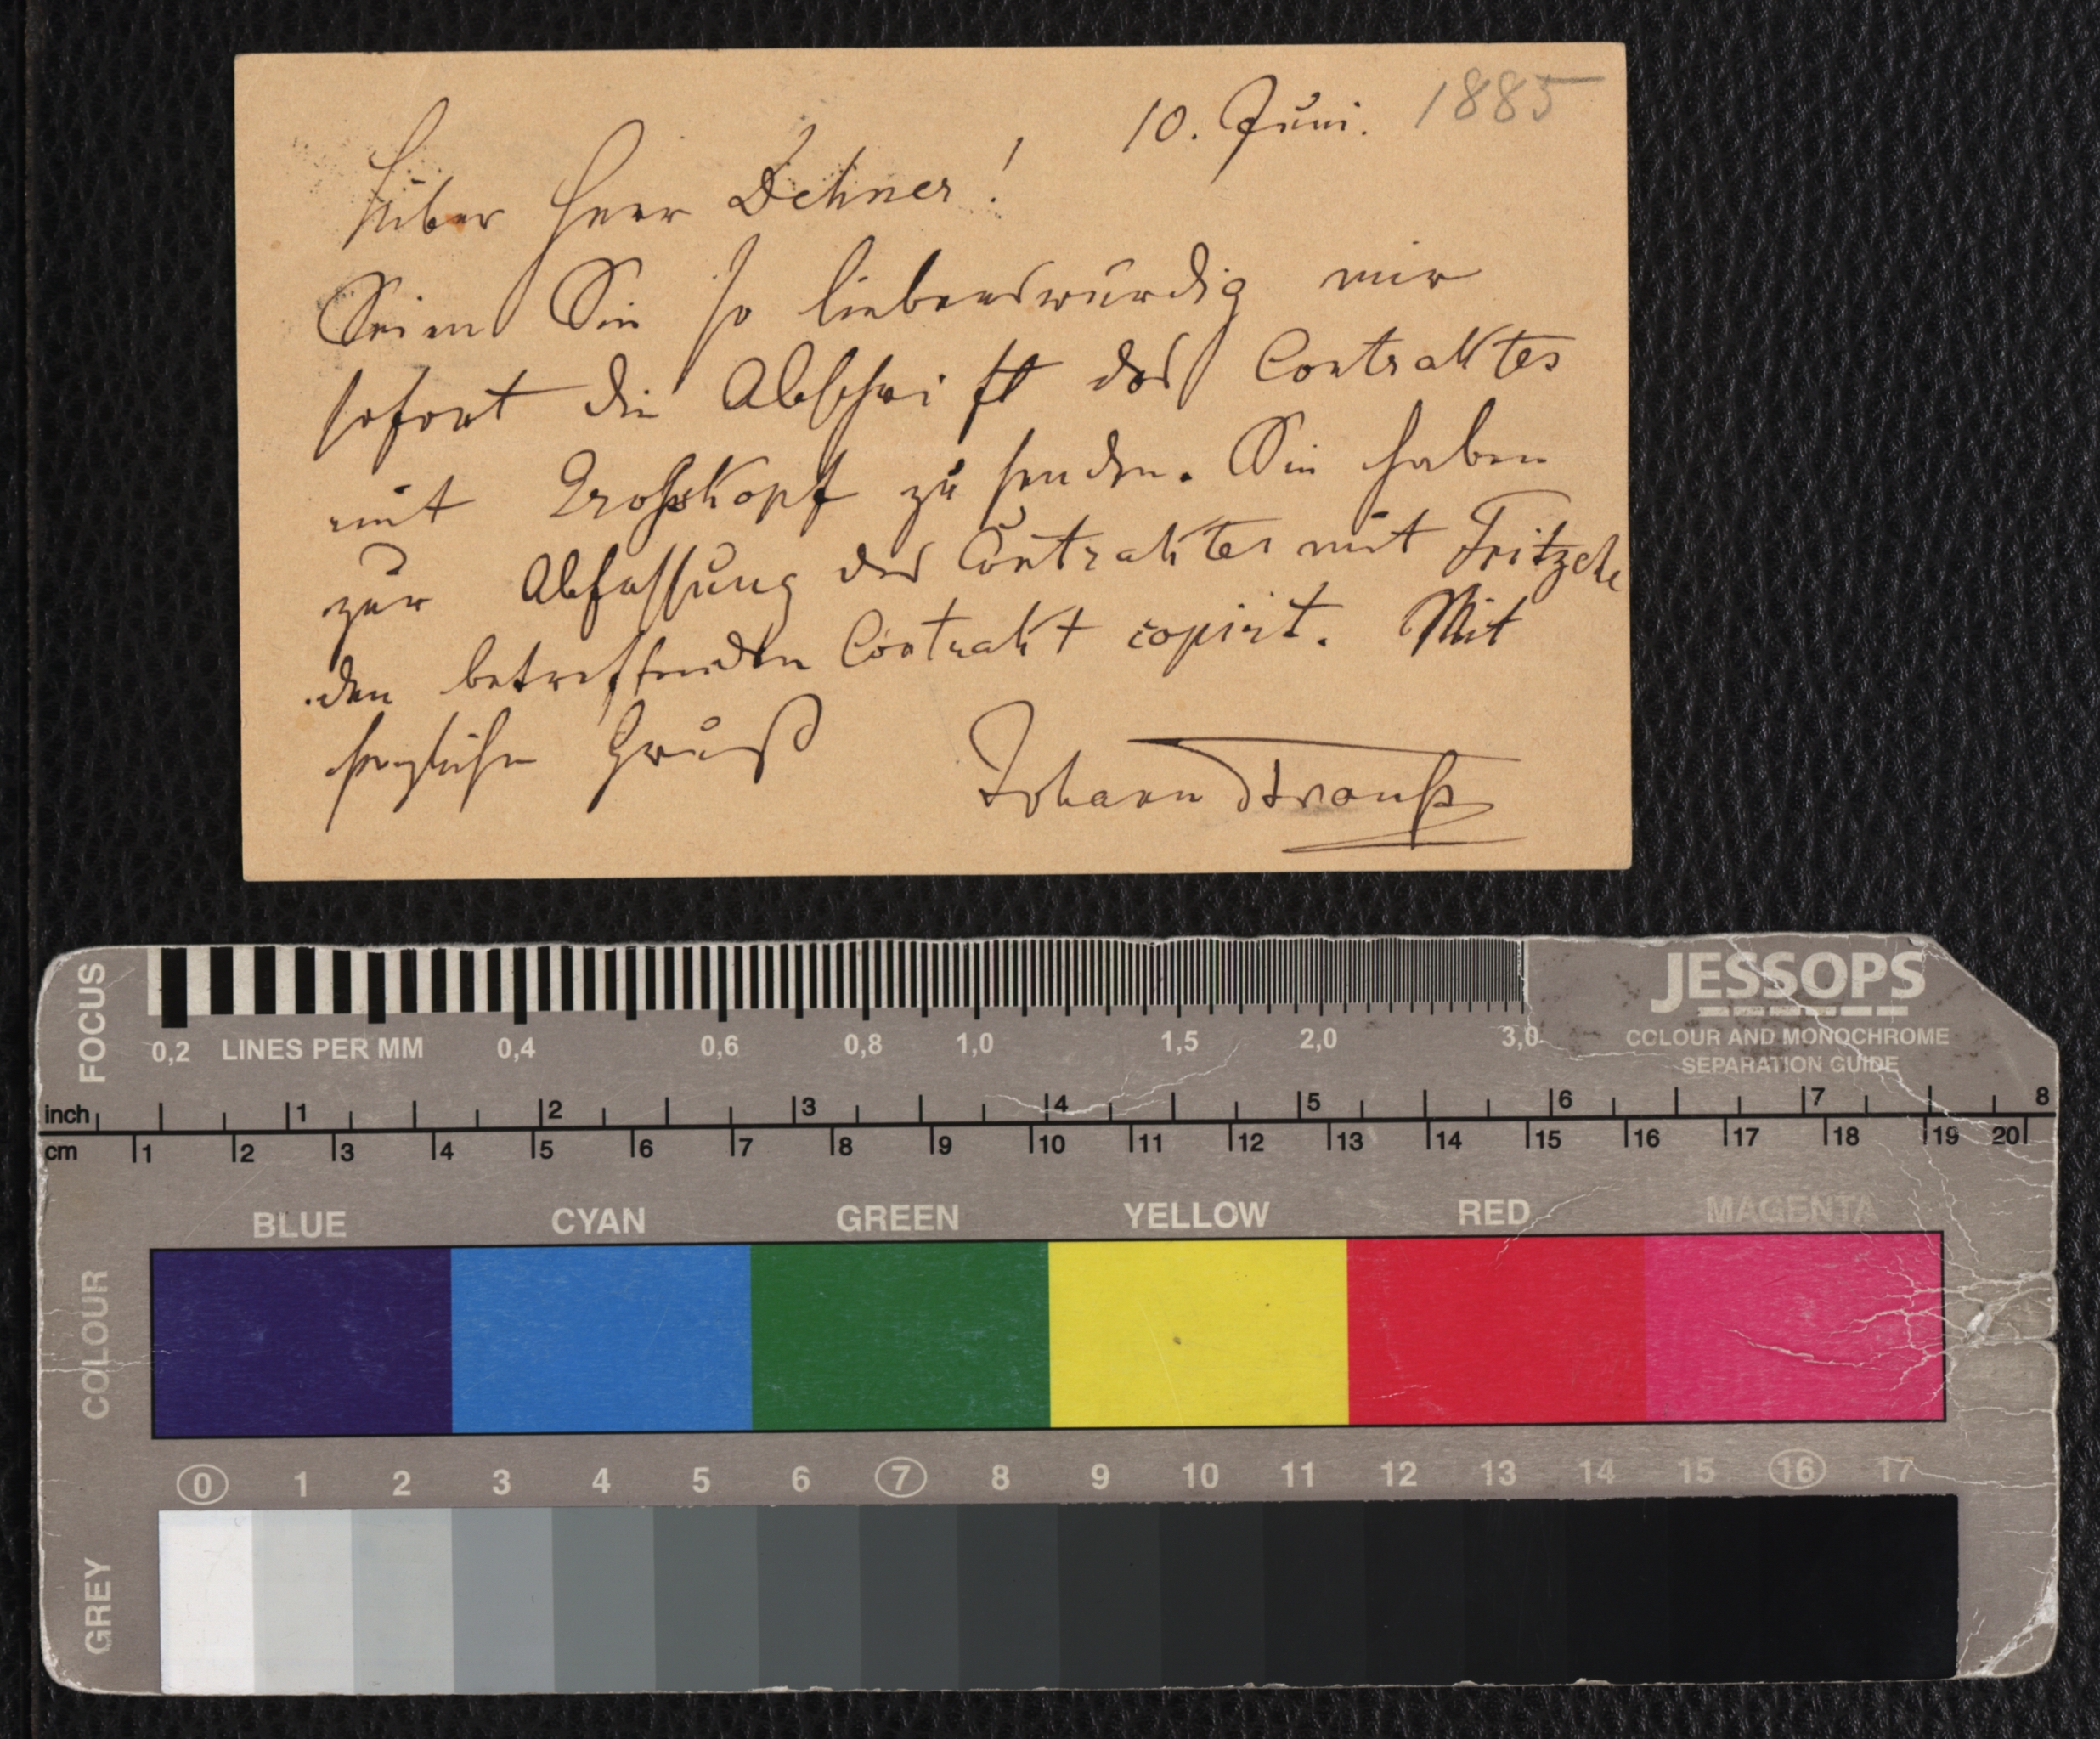 10. Juni. 1885
Lieber Herr Dehner!
Seien Sie so liebenswürdig mir
sofort die Abschrift des Contraktes
mit Grosskopf zu senden. Sie haben
zur Abfassung des Contraktes mit Fritzsche
den betreffenden Contrakt copirt. Mit
herzlichen Gruß
Johann Strauß
FOCUS
JESSOPS
COLOUR AND MONOCHROME
SEPARATION GUIDE
0,2 LINES PER MM 0,4 0,6 0,8 1,0 1,5 2,0 3,0
inch 1 2 3 4 5 6 7 8
cm 1 2 3 4 5 6 7 8 9 10 11 12 13 14 15 16 17 18 19 20
BLUE CYAN GREEN YELLOW RED MAGENTA
COLOUR
0 1 2 3 4 5 6 7 8 9 10 11 12 13 14 15 16 17
GREY